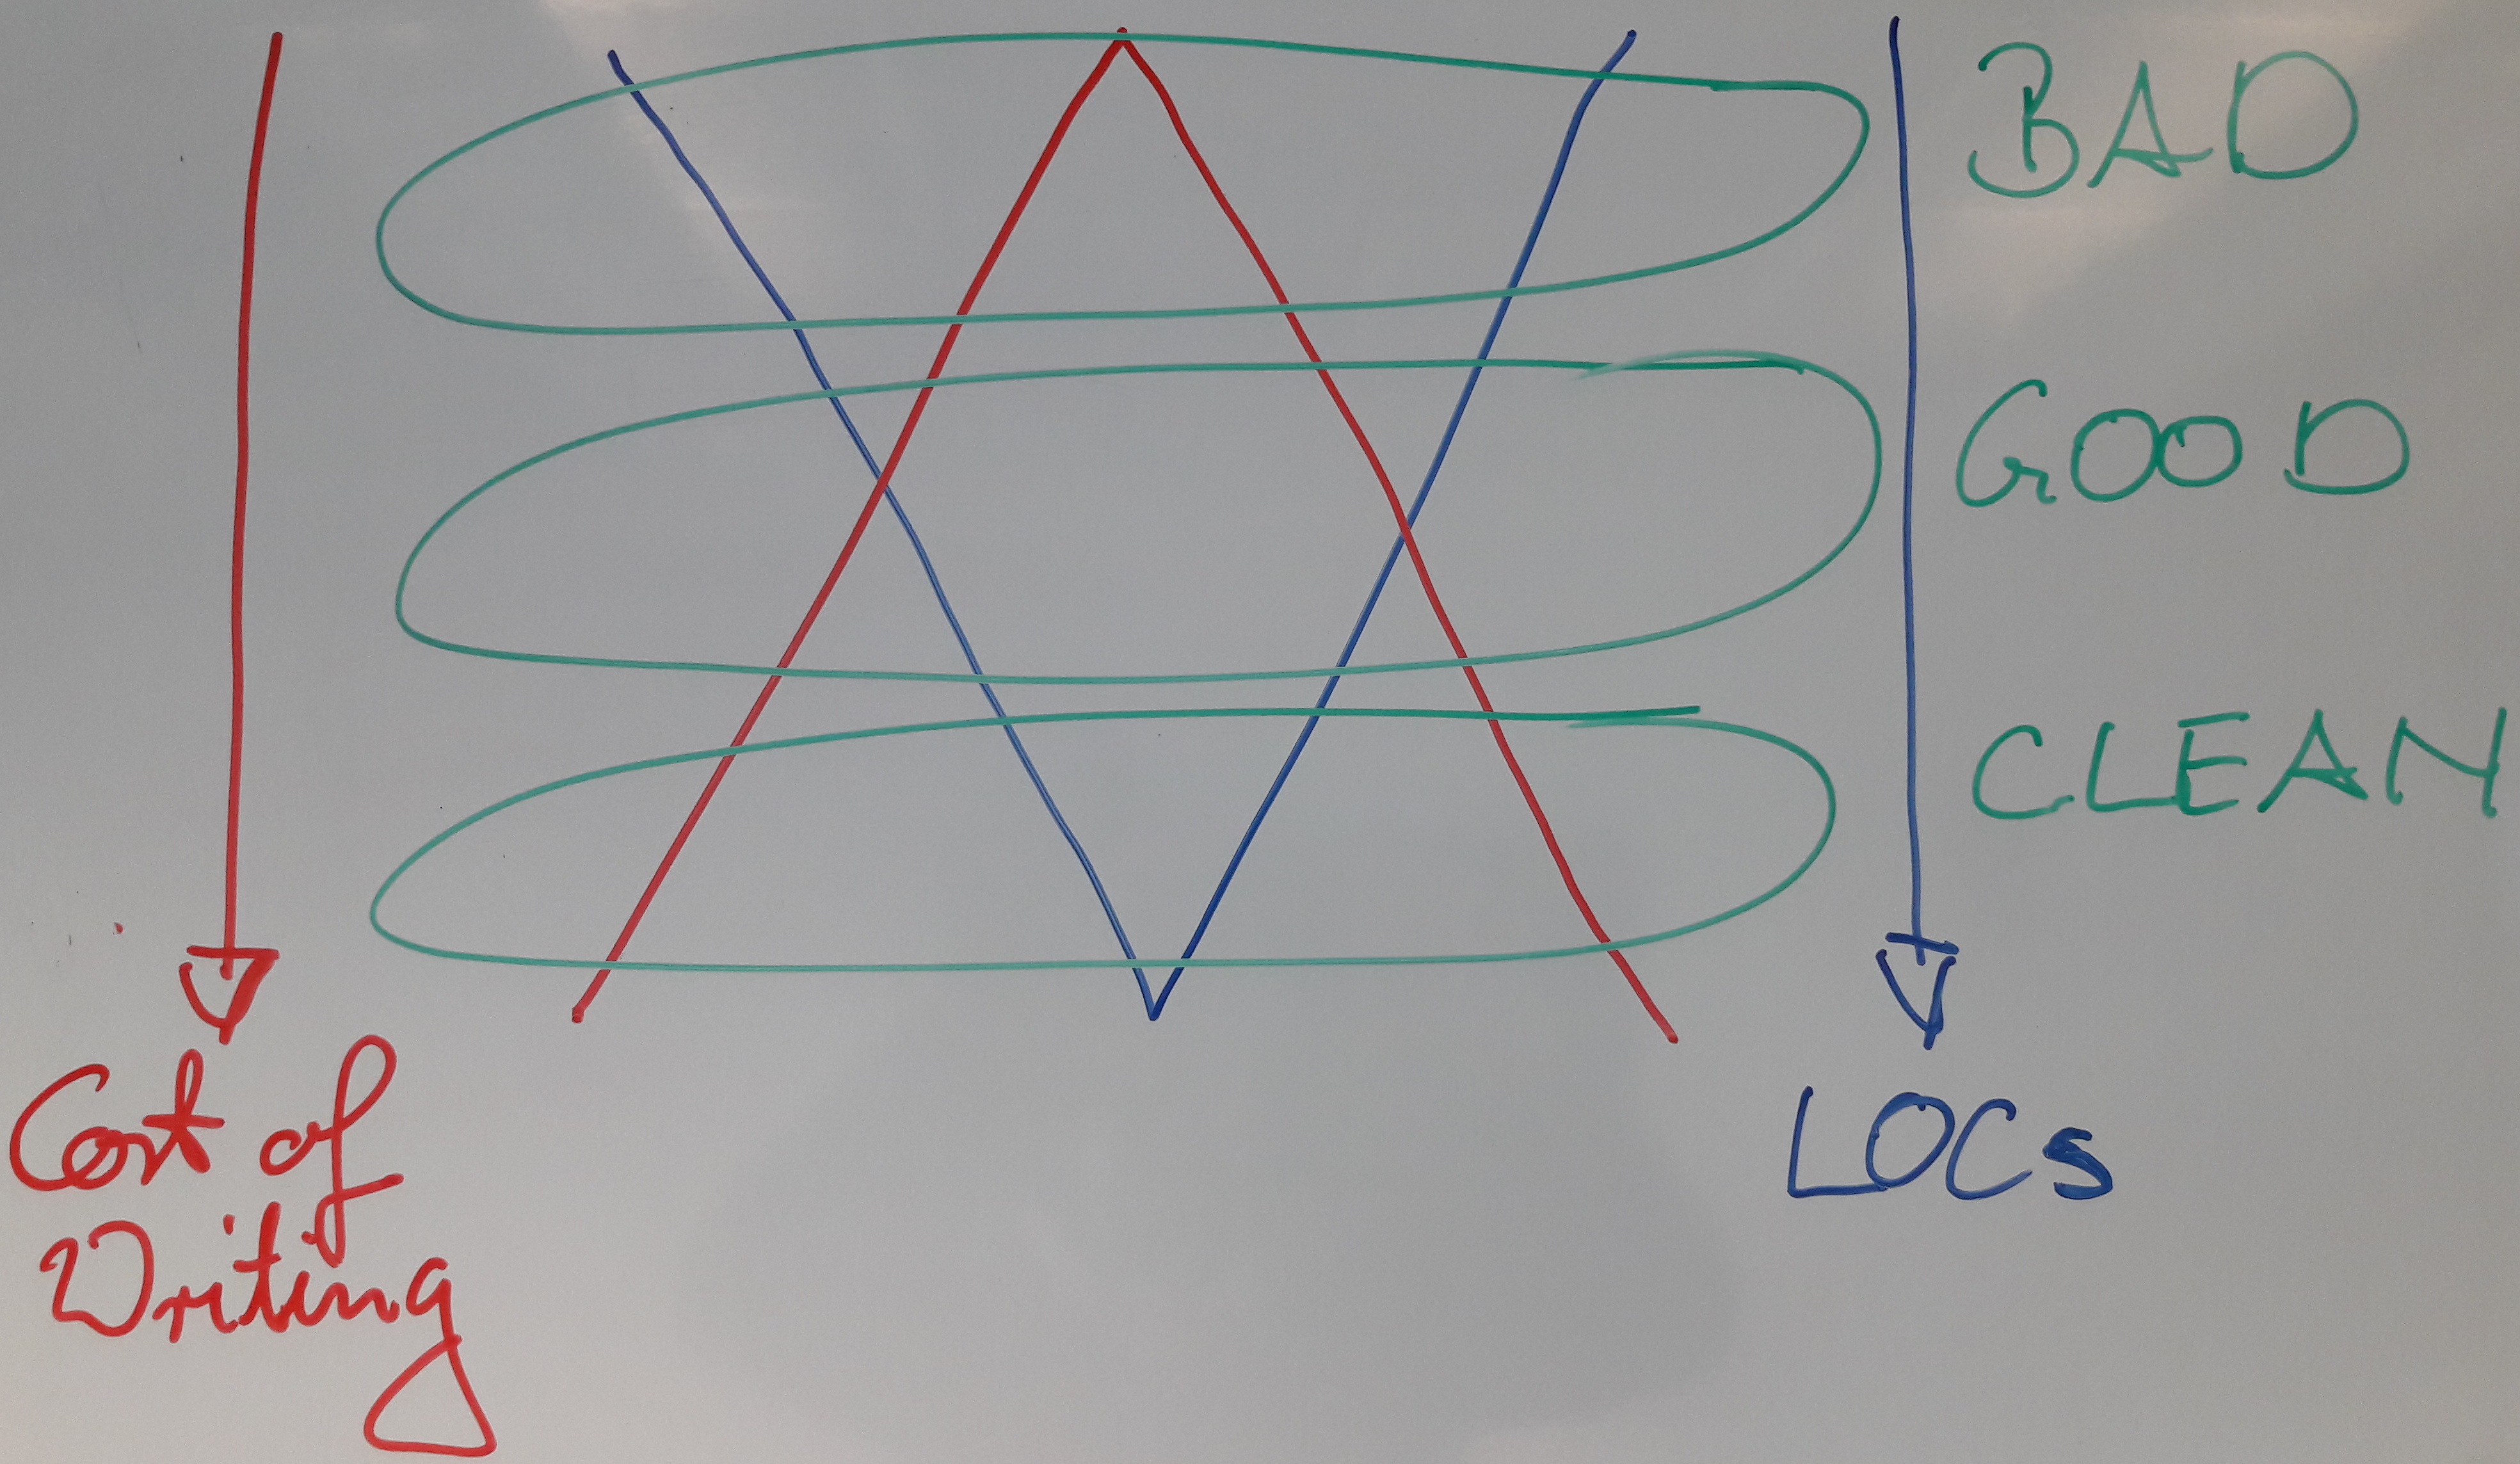 BAD
GOOD
CLEAN
Cost of
Writing
LOCs